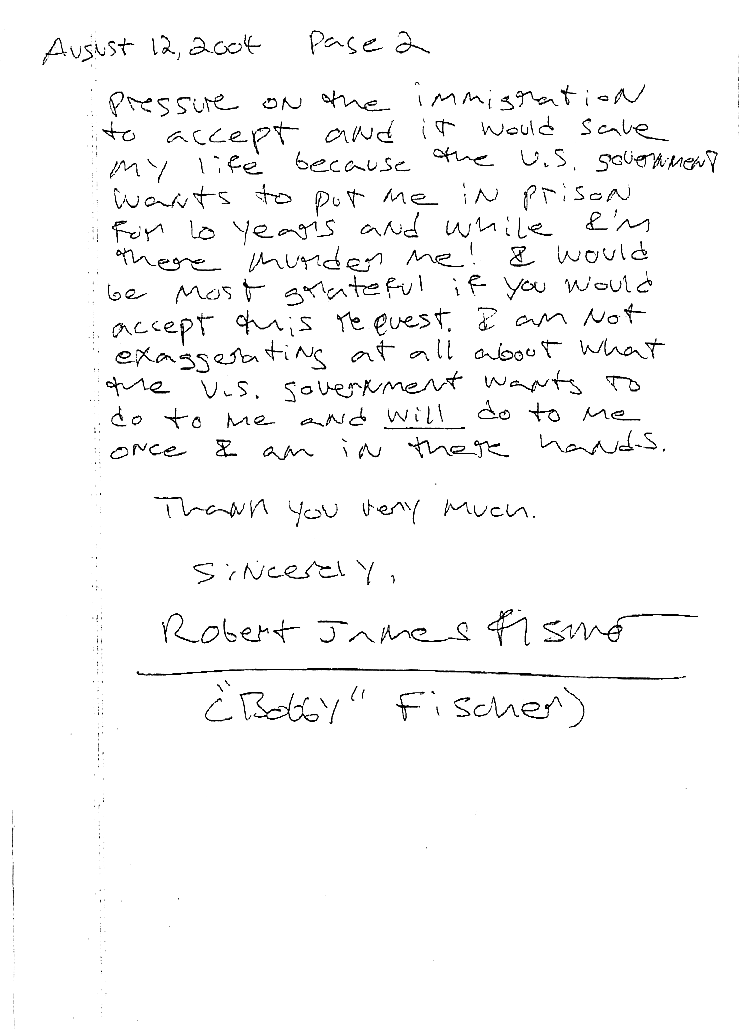 August 12, 2004 Page 2
pressure on the immigration
to accept and it would save
my life because the U.S. government
wants to put me in prison
for 10 years and while I'm
there murder me! I would
be most grateful if you would
accept this request. I am not
exaggerating at all about what
the U.S. government wants to
do to me and will do to me
once I am in there hands.
Thank you very much.
Sincerely,
Robert James Fischer
("Bobby" Fischer)